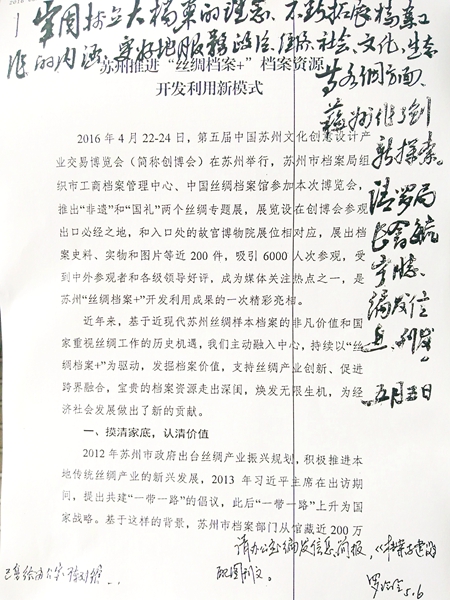 常用树立大档案的理念，不断拓展档案工
作的内涵，更好地服务政治、经济、社会、文化、生态
等各个方面，
苏州推进“丝绸档案+”档案资源
开发利用新模式
新探索。
2016 年 4 月 22-24 日，第五届中国苏州文化创意设计产
业交易博览会（简称创博会）在苏州举行，苏州市档案局组
织市工商档案管理中心、中国丝绸档案馆参加本次博览会，
推出“非遗”和“国礼”两个丝绸专题展，展览设在创博会参观
出口必经之地，和入口处的故宫博物院展位相对应，展出档
案史料、实物和图片等近 200 件，吸引 6000 人次参观，受
到中外参观者和各级领导好评，成为媒体关注热点之一，是
苏州“丝绸档案+”开发利用成果的一次精彩亮相。
近年来，基于近现代苏州丝绸样本档案的非凡价值和国
家重视丝绸工作的历史机遇，我们主动融入中心，持续以“丝
绸档案+”为驱动，发掘档案价值，支持丝绸产业创新、促进
跨界融合，宝贵的档案资源走出深闺，焕发无限生机，为经
济社会发展做出了新的贡献。
五月五日
一、摸清家底，认清价值
2012 年苏州市政府出台丝绸产业振兴规划，积极推进本
地传统丝绸产业的新兴发展，2013 年习近平主席在出访期
间，提出共建“一带一路”的倡议，此后“一带一路”上升为国
家战略。基于这样的背景，苏州市档案部门从馆藏近 200 万
请办公室编发信息简报，《档案与建设》
配图刊文。
5.6